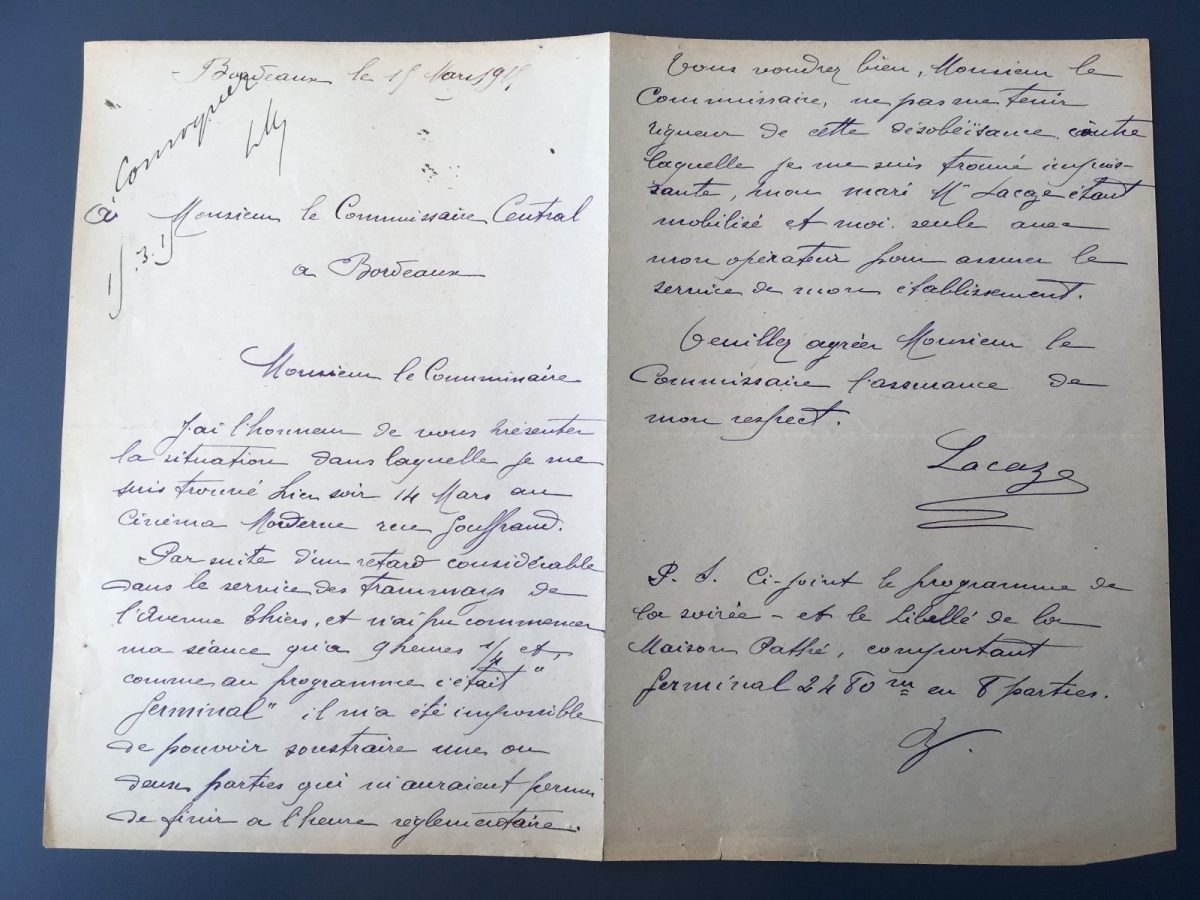 Bordeaux le 15 Mars 1915
à Convoquer
15.3.15
a Monsieur le Commissaire Central
a Bordeaux
Monsieur le Commissaire
J'ai l'honneur de vous présenter
la situation dans laquelle je me
suis trouvé hier soir 14 Mars au
Cinéma Moderne rue Gouffrand.
Par suite d'un retard considérable
dans le service des tramways de
l'Avenue Thiers, et n'ai pu commencer
ma séance qu'a 9 heures 1/4 et,
comme au programme c'était "
Germinal" il m'a été impossible
de pouvoir soustraire une ou
deux parties qui m'auraient permis
de finir a l'heure réglementaire.
Vous voudrez bien, Monsieur le
Commissaire, ne pas me tenir
rigueur de cette désobéïsance contre
laquelle je me suis trouvé impuis-
sante, mon mari Mr Lacaze étant
mobilisé et moi seule avec
mon opérateur pour assurer le
service de mon établissement.
Veuillez agréer Monsieur le
Commissaire l'assurance de
mon respect.
Lacaze
P. S. Ci-joint le programme de
la soirée - et le libellé de la
Maison Pathé, comportant
Germinal 2480 m en 8 parties.